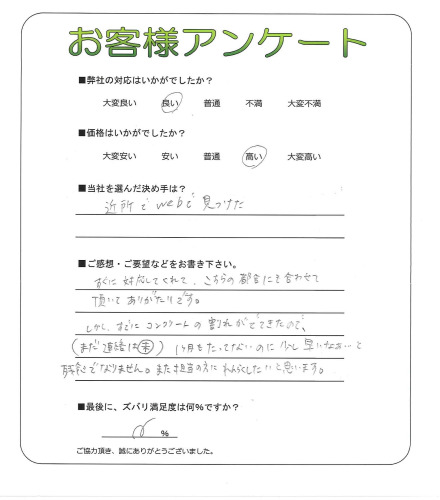 お客様アンケート
■弊社の対応はいかがでしたか？
大変良い 良い 普通 不満 大変不満
■価格はいかがでしたか？
大変安い 安い 普通 高い 大変高い
■当社を選んだ決め手は？
近所で webで 見つけた
■ご感想・ご要望などをお書き下さい。
すぐに 対応してくれて、こちらの 都合にも合わせて
頂いて ありがたいです。
しかし、すでに コンクリートの 割れがでてきたので、
(まだ 連絡は 未) 1ヶ月もたってないのに 少し 早いなぁ〜と
なりません。また 担当の方に れんらくしたいと思います。
■最後に、ズバリ満足度は何％ですか？
%
ご協力頂き、誠にありがとうございました。